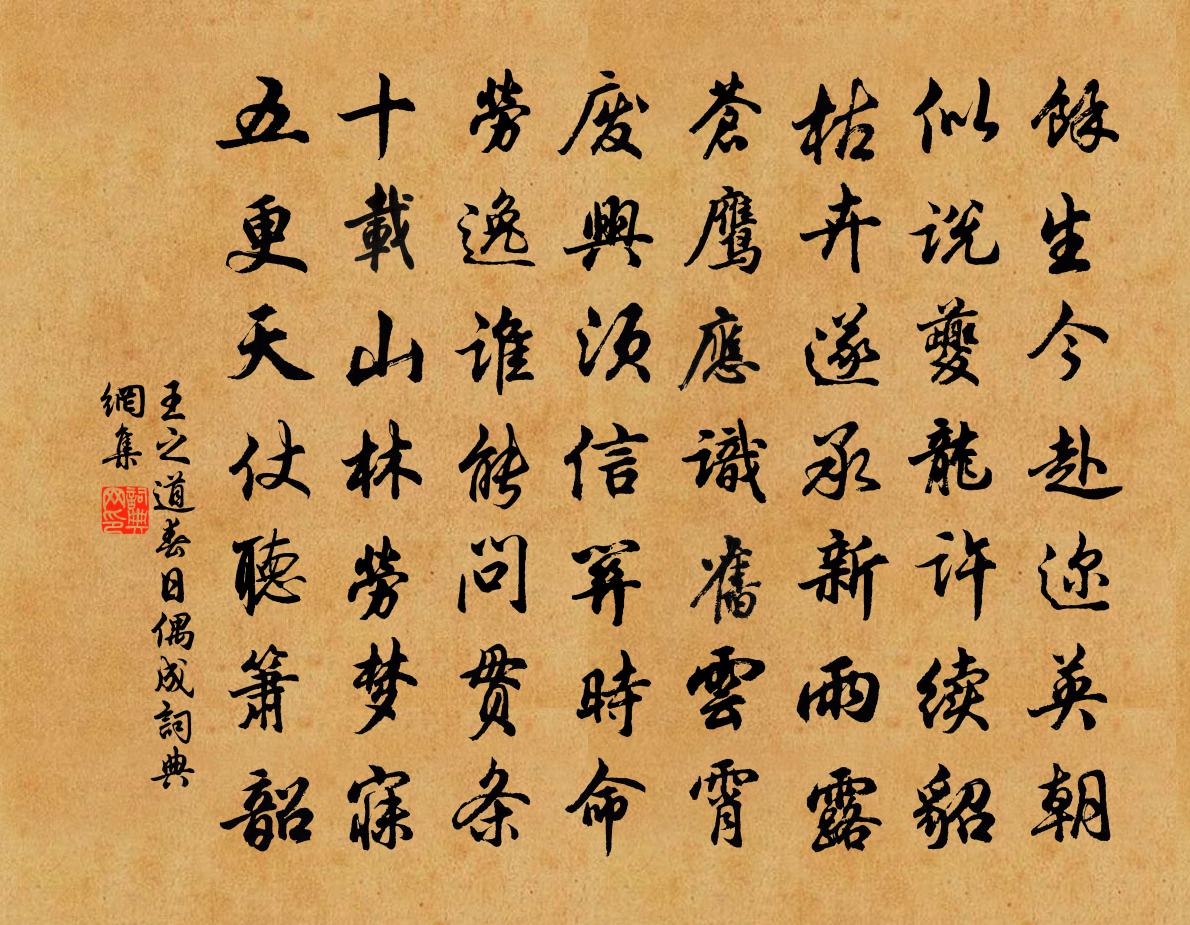 餘生今赴迩英朝
似説夔龍許续貂
枯卉遂承新雨露
蒼鷹應識舊雲霄
廢興須信關時命
勞逸誰能問貫条
十載山林勞梦寐
五更天仗聽簫韶
王之道春日偶成詞典
網集
詞典网印